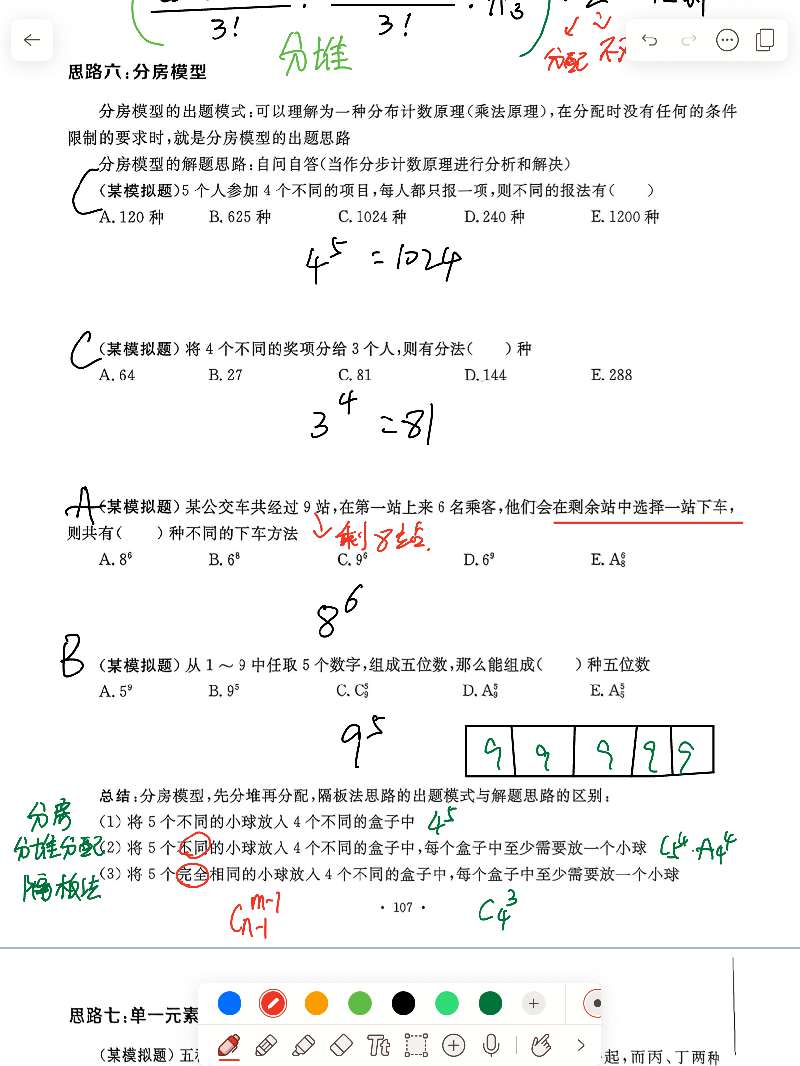 3!
3!
分堆
分配
思路六:分房模型
分房模型的出题模式:可以理解为一种分布计数原理(乘法原理),在分配时没有任何的条件
限制的要求时,就是分房模型的出题思路
分房模型的解题思路:自问自答(当作分步计数原理进行分析和解决)
C (某模拟题)5 个人参加 4 个不同的项目,每人都只报一项,则不同的报法有( )
A. 120 种 B. 625 种 C. 1024 种 D. 240 种 E. 1200 种
4⁵ = 1024
C (某模拟题) 将 4 个不同的奖项分给 3 个人,则有分法( )种
A. 64 B. 27 C. 81 D. 144 E. 288
3⁴ = 81
A (某模拟题) 某公交车共经过 9 站,在第一站上来 6 名乘客,他们会在剩余站中选择一站下车,
则共有( )种不同的下车方法 剩8站
A. 8⁶ B. 6⁸ C. 9⁶ D. 6⁹ E. A₈⁶
8⁶
B (某模拟题) 从 1 ~ 9 中任取 5 个数字,组成五位数,那么能组成( )种五位数
A. 5⁹ B. 9⁵ C. C₉⁵ D. A₉⁵ E. A₅⁵
9⁵ 9 9 9 9 9
总结:分房模型,先分堆再分配,隔板法思路的出题模式与解题思路的区别:
分房 (1) 将 5 个不同的小球放入 4 个不同的盒子中 4⁵
分堆分配 (2) 将 5 个不同的小球放入 4 个不同的盒子中,每个盒子中至少需要放一个小球 C₅⁴·A₄⁴
隔板法 (3) 将 5 个完全相同的小球放入 4 个不同的盒子中,每个盒子中至少需要放一个小球
Cₙ₋₁ᵐ⁻¹ · 107 · C₄³
思路七:单一元素
Tt
(某模拟题) 五 起,而丙、丁两种